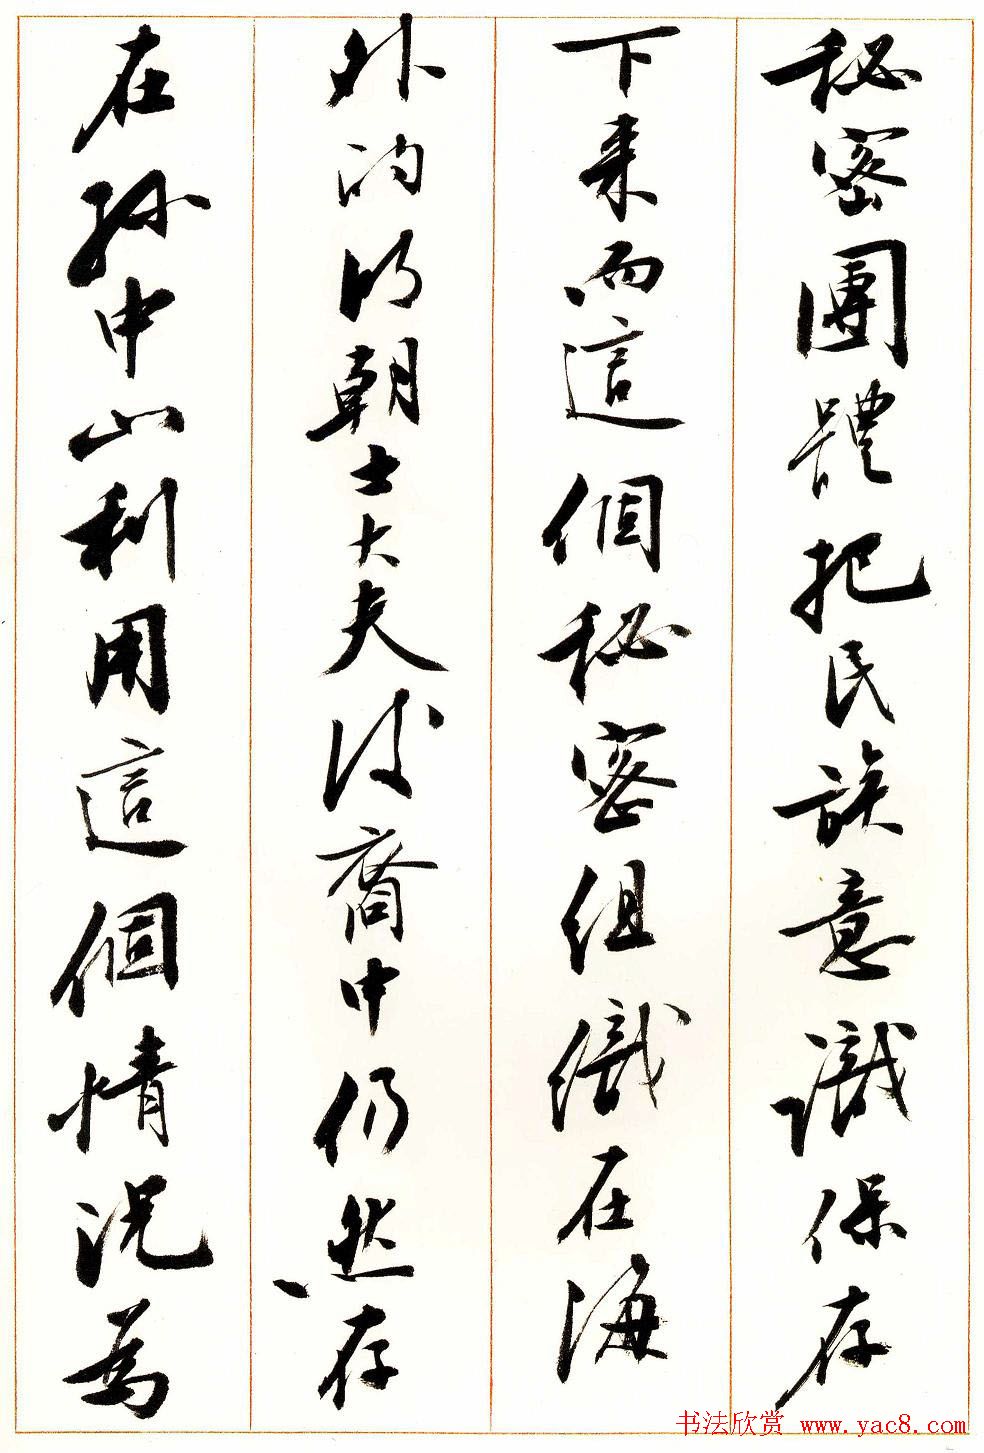 秘密團體把民族意識保存
下来而這個秘密組織在海
外的明朝士大夫後裔中仍然存
在孫中山利用這個情況為
书法欣赏 www.yac8.com